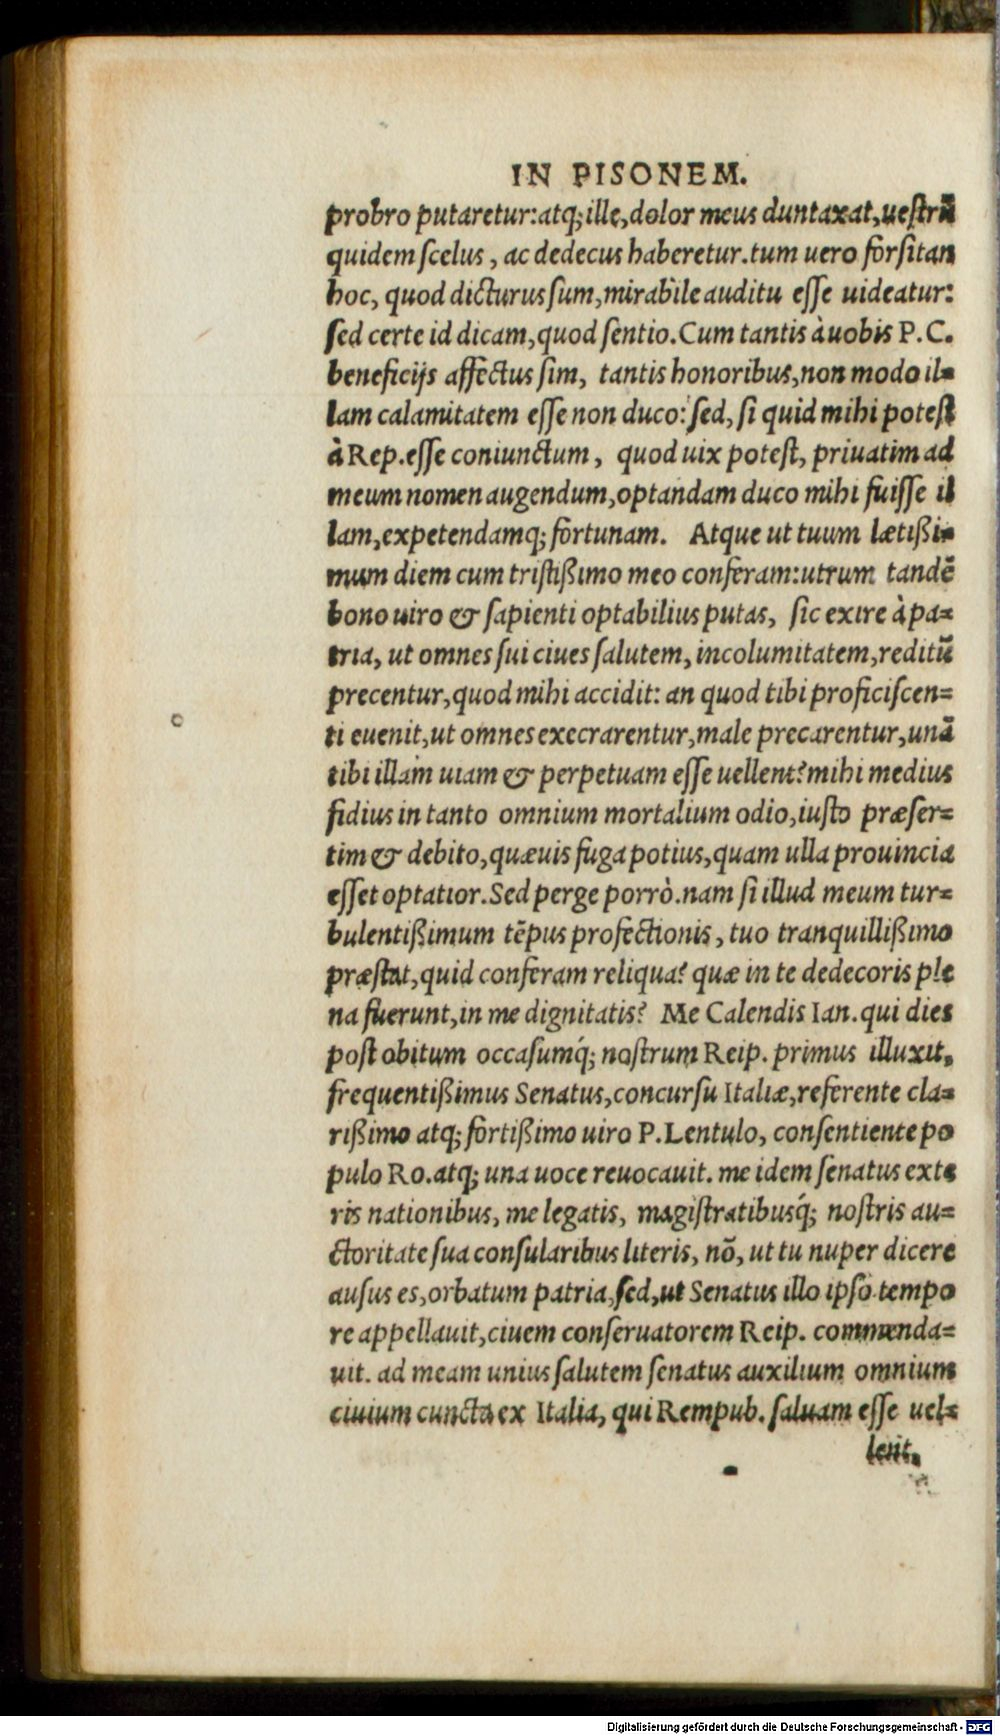 IN PISONEM.
probro putaretur:atq; ille, dolor meus duntaxat, uestrũ
quidem ſcelus, ac dedecus haberetur. tum uero forſitan
hoc, quod dicturus ſum, mirabile auditu eſſe uideatur:
ſed certe id dicam, quod ſentio. Cum tantis à uobis P. C.
beneficijs affectus ſim, tantis honoribus, non modo il=
lam calamitatem eſſe non duco: ſed, ſi quid mihi poteſt
à Rep. eſſe coniunctum, quod uix poteſt, priuatim ad
meum nomen augendum, optandam duco mihi fuiſſe il
lam, expetendamq; fortunam. Atque ut tuum lætißi=
mum diem cum triſtißimo meo conferam: utrum tandẽ
bono uiro & ſapienti optabilius putas, ſic exire à pa=
tria, ut omnes ſui ciues ſalutem, incolumitatem, reditũ
precentur, quod mihi accidit: an quod tibi proficiſcen=
ti euenit, ut omnes execrarentur, male precarentur, unã
tibi illam uiam & perpetuam eſſe uellent? mihi medius
fidius in tanto omnium mortalium odio, iuſto præſer=
tim & debito, quæuis fuga potius, quam ulla prouincia
eſſet optatior. Sed perge porrò. nam ſi illud meum tur=
bulentißimum tẽpus profectionis, tuo tranquillißimo
præſtat, quid conferam reliqua? quæ in te dedecoris ple
na fuerunt, in me dignitatis? Me Calendis Ian. qui dies
poſt obitum occaſumq́; noſtrum Reip. primus illuxit,
frequentißimus Senatus, concurſu Italiæ, referente cla=
rißimo atq; fortißimo uiro P. Lentulo, conſentiente po
pulo Ro. atq; una uoce reuocauit. me idem ſenatus exte
ris nationibus, me legatis, magiſtratibusq́; noſtris au=
ctoritate ſua conſularibus literis, nõ, ut tu nuper dicere
auſus es, orbatum patria, ſed, ut Senatus illo ipſo tempo
re appellauit, ciuem conſeruatorem Reip. commenda=
uit. ad meam unius ſalutem ſenatus auxilium omnium
ciuium cuncta ex Italia, qui Rempub. ſaluam eſſe uel=
lent,
Digitalisierung gefördert durch die Deutsche Forschungsgemeinschaft - DFG